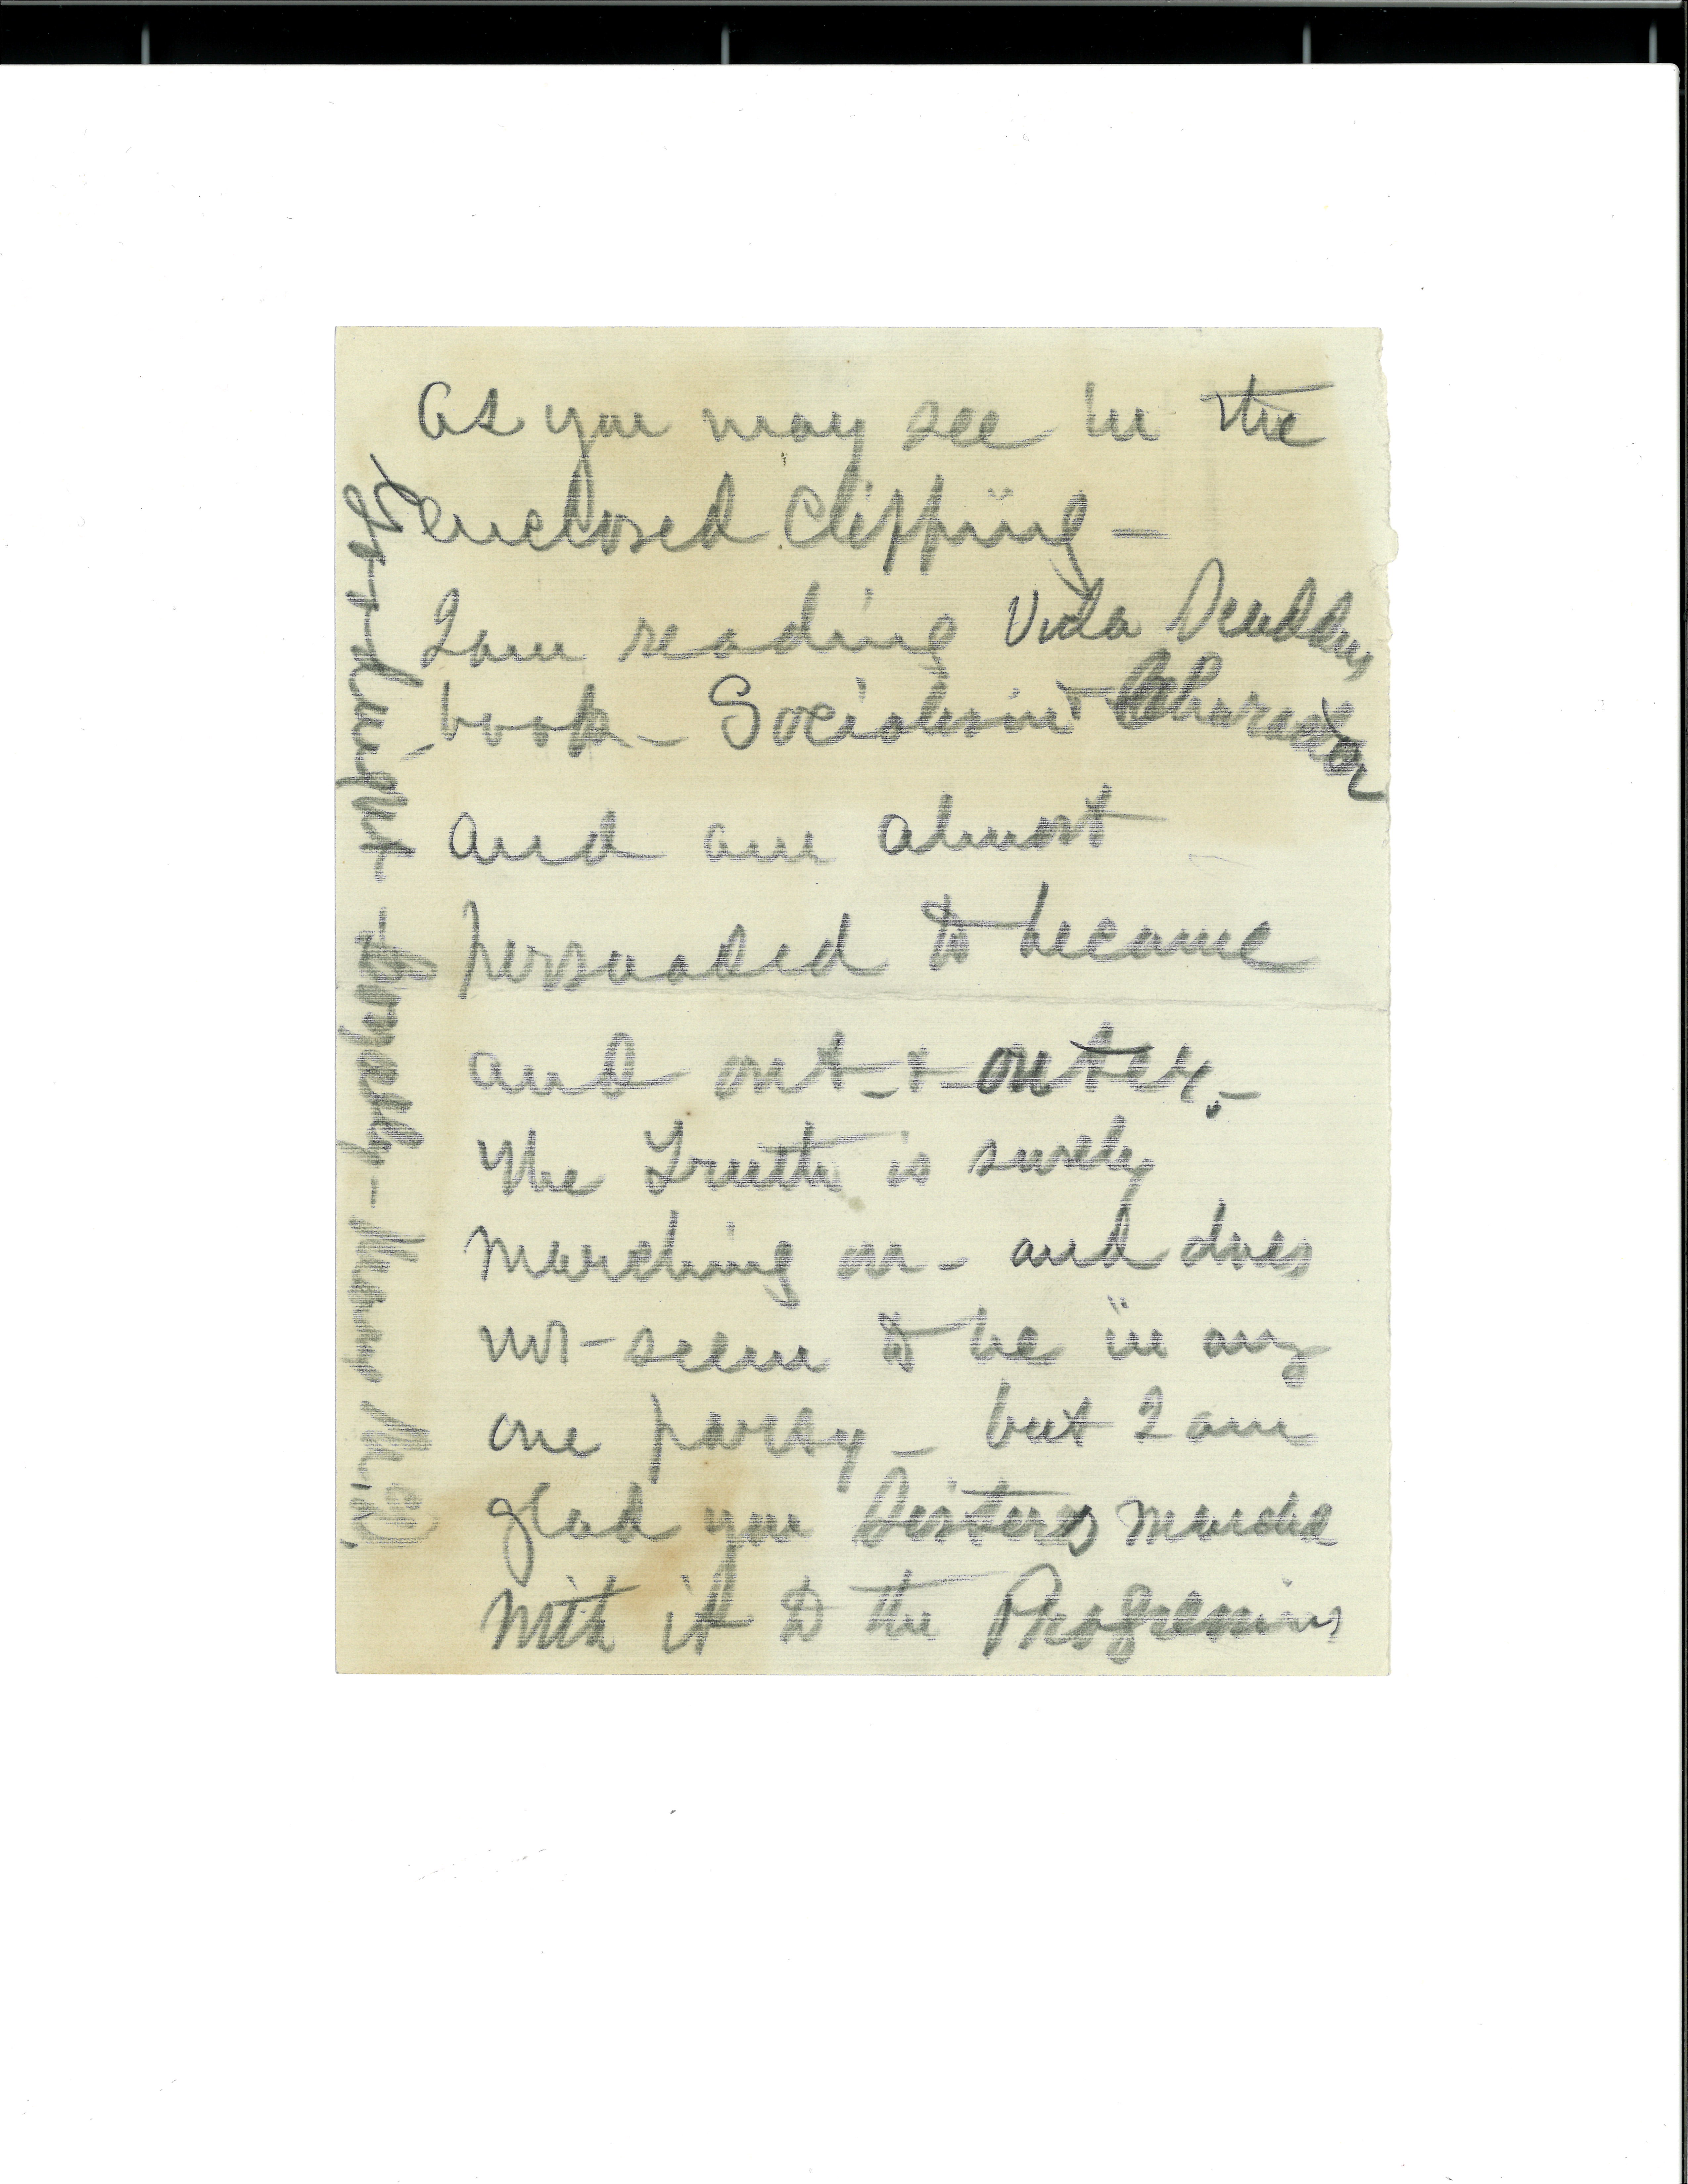 As you may see in the
enclosed clipping —
I am reading Vida Scudders
book — Socialism & Character
and am almost
persuaded to become
and out - & - outer. —
The Truth is surely
marching on - and does
not - seem to be in any
one party — but I am
glad you Sisters march
with it to the Progressives
Good night - Loyally —